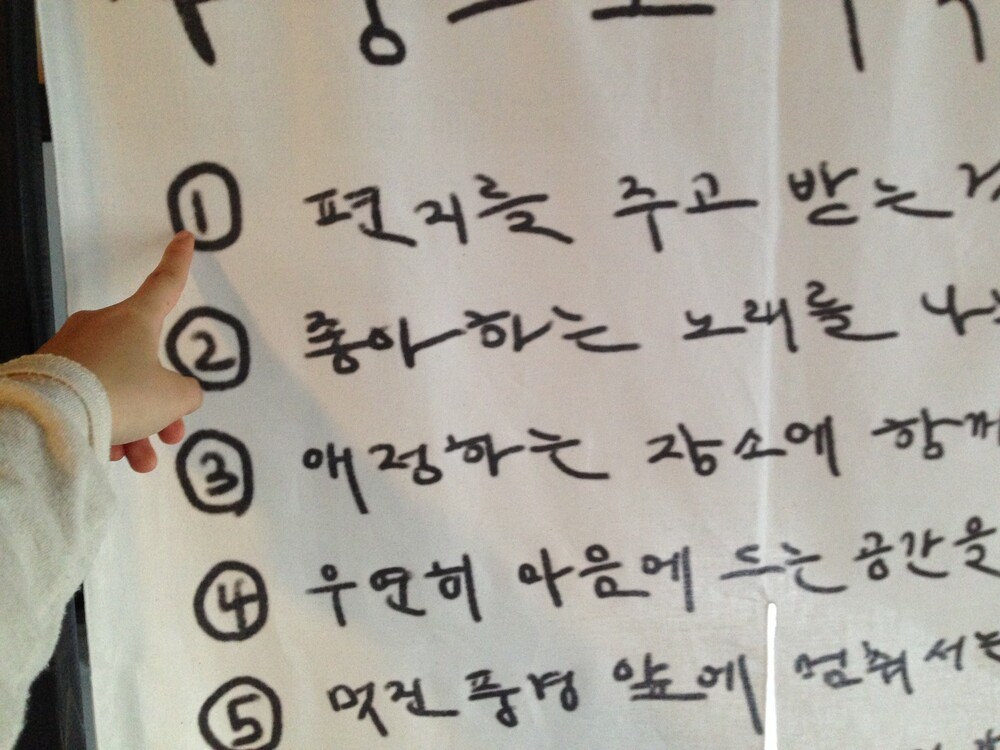 ① 편지를 주고 받는
② 좋아하는 노래를
③ 애정하는 장소에 함께
④ 우연히 마음에 드는 공간을
⑤ 멋진 풍경 앞에 멈춰서는